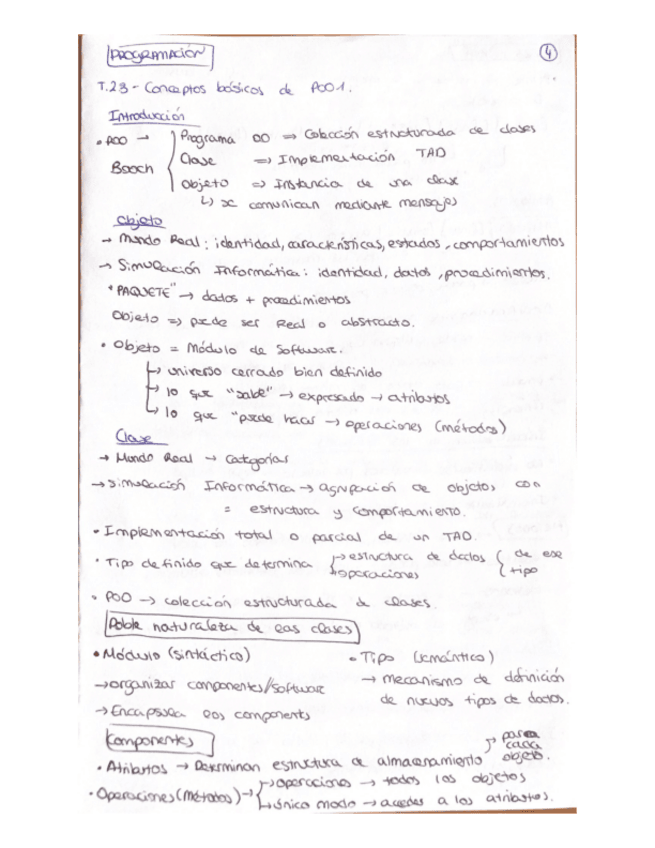 PROGRAMACIÓN
4
T.23 - Conceptos básicos de POO1.
Introducción
• POO → Programa OO ⇒ Colección estructurada de clases
Booch Clase ⇒ Implementación TAD
Objeto ⇒ Instancia de una clase
↳ se comunican mediante mensajes
Objeto
→ Mundo Real: identidad, características, estados, comportamientos
→ Simulación Informática: identidad, datos, procedimientos.
"PAQUETE" → datos + procedimientos
Objeto ⇒ puede ser Real o abstracto.
• Objeto = Módulo de Software.
↳ universo cerrado bien definido
↳ lo que "sabe" → expresado → atributos
↳ lo que "puede hacer → operaciones (métodos)
Clase
→ Mundo Real → Categorías
→ Simulación Informática → agrupación de objetos con
= estructura y comportamiento.
• Implementación total o parcial de un TAD.
• Tipo definido que determina → estructura de datos { de ese
→ operaciones { tipo
• POO → colección estructurada de clases.
Doble naturaleza de las clases
• Módulo (sintáctico)
• Tipo (semántico)
→ organizar componentes/software
→ mecanismo de definición
de nuevos tipos de datos.
→ Encapsula los components
Componentes
• Atributos → Determinan estructura de almacenamiento → para cada objeto.
• Operaciones (Métodos) → { → operaciones → todos los objetos
↳ único modo → acceder a los atributos.